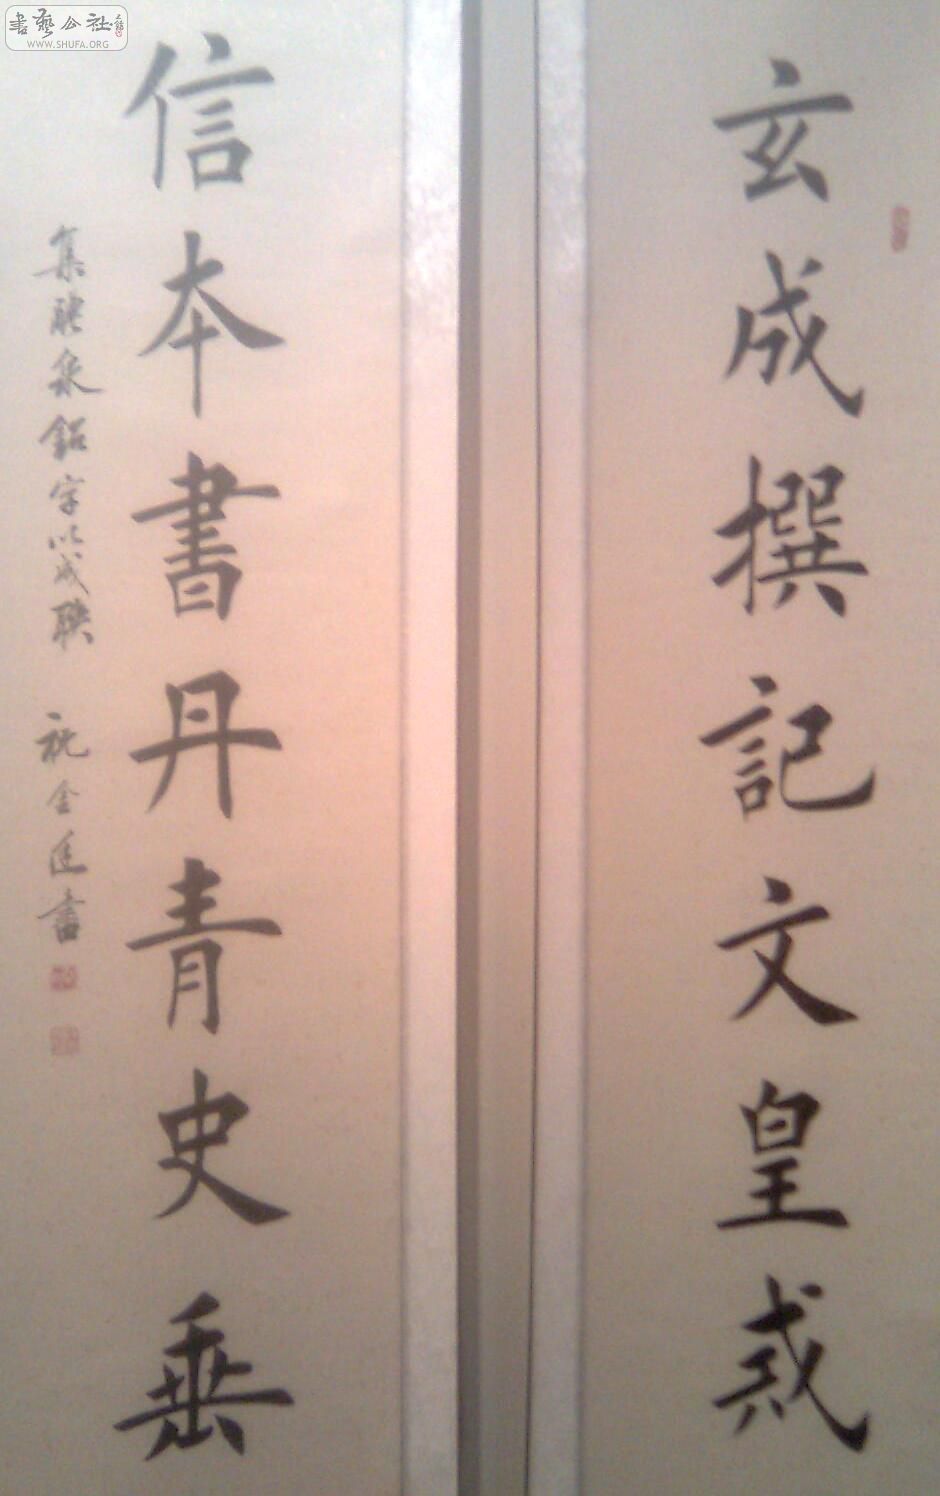 書藝公社
WWW.SHUFA.ORG
玄成撰記文皇戒
信本書丹青史垂
集醴泉銘字以成聯 祝金書